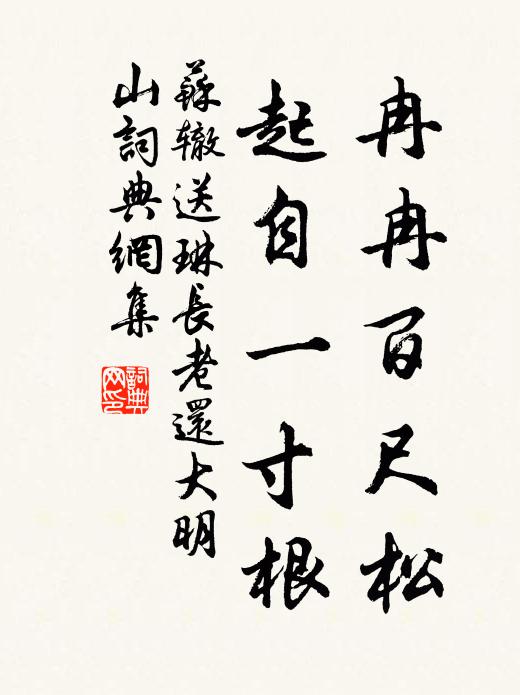 冉冉百尺松
起自一寸根
蘇辙送琳長老還大明
山詞典網集
詞典网印